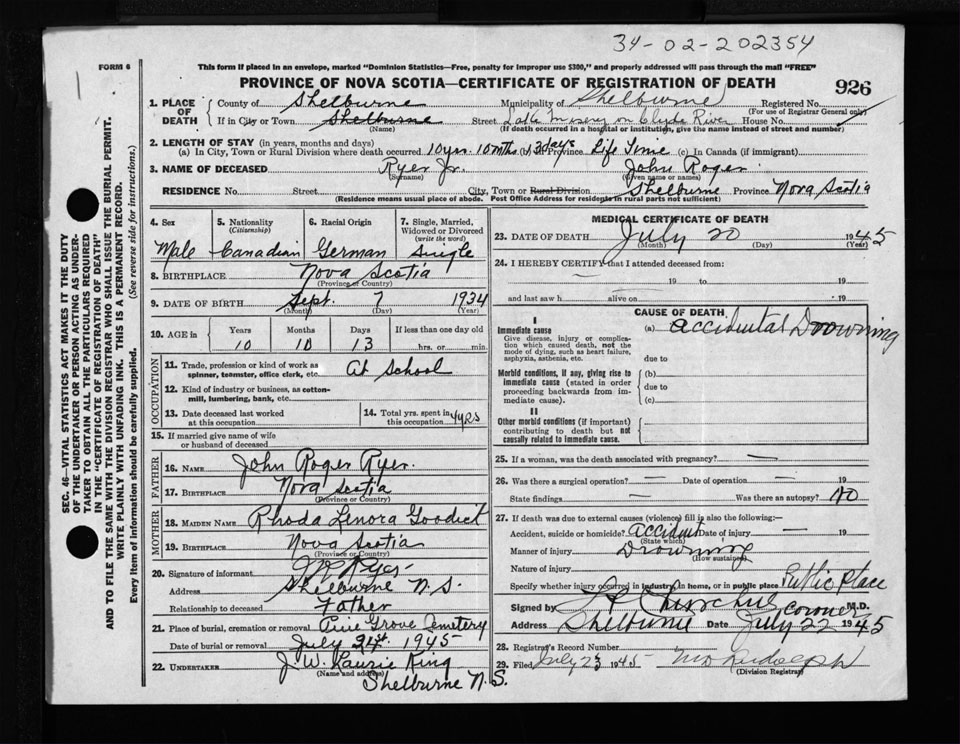 34-02-202354
FORM 6
This form if placed in an envelope, marked "Dominion Statistics—Free, penalty for improper use $300," and properly addressed will pass through the mail "FREE"
PROVINCE OF NOVA SCOTIA—CERTIFICATE OF REGISTRATION OF DEATH
926
1. PLACE OF DEATH County of Shelburne Municipality of Shelburne Registered No.
(For use of Registrar General only)
If in City or Town Shelburne Street on Clyde River House No.
(Name) (If death occurred in a hospital or institution, give the name instead of street and number)
2. LENGTH OF STAY (in years, months and days)
(a) In City, Town or Rural Division where death occurred 10 yrs. 10 mths. 13 days Province Life Time (c) In Canada (if immigrant)
3. NAME OF DECEASED Ryer Jr. John Roger
(Surname) (Given name or names)
RESIDENCE No. Street City, Town or Rural Division Shelburne Province Nova Scotia
(Residence means usual place of abode. Post Office Address for residents in rural parts not sufficient)
SEC. 46—VITAL STATISTICS ACT MAKES IT THE DUTY
OF THE UNDERTAKER OR PERSON ACTING AS UNDER-
TAKER TO OBTAIN ALL THE PARTICULARS REQUIRED
IN THE "CERTIFICATE OF REGISTRATION OF DEATH"
AND TO FILE THE SAME WITH THE DIVISION REGISTRAR WHO SHALL ISSUE THE BURIAL PERMIT.
WRITE PLAINLY WITH UNFADING INK. THIS IS A PERMANENT RECORD.
Every item of information should be carefully supplied. (See reverse side for instructions.)
4. Sex 5. Nationality 6. Racial Origin 7. Single, Married,
(Citizenship) Widowed or Divorced
(write the word)
Male Canadian German Single
8. BIRTHPLACE Nova Scotia
(Province or Country)
9. DATE OF BIRTH Sept. 7 1934
(Month) (Day) (Year)
10. AGE in Years Months Days If less than one day old
10 10 13 hrs. or min.
OCCUPATION
11. Trade, profession or kind of work as At School
spinner, teamster, office clerk, etc.
12. Kind of industry or business, as cotton-
mill, lumbering, bank, etc.
13. Date deceased last worked 14. Total yrs. spent in
at this occupation this occupation 4 yrs
15. If married give name of wife
or husband of deceased
FATHER
16. NAME John Roger Ryer.
17. BIRTHPLACE Nova Scotia
(Province or Country)
MOTHER
18. MAIDEN NAME Rhoda Lenora Goodick
19. BIRTHPLACE Nova Scotia
(Province or Country)
20. Signature of informant J R Ryer
Address Shelburne N.S.
Relationship to deceased Father
21. Place of burial, cremation or removal Pine Grove Cemetery
Date of burial or removal July 1945
22. UNDERTAKER J. W. Laurie King
Shelburne N.S.
MEDICAL CERTIFICATE OF DEATH
23. DATE OF DEATH July 20 1945
(Month) (Day) (Year)
24. I HEREBY CERTIFY that I attended deceased from:
— 19 to 19
and last saw h alive on 19
CAUSE OF DEATH
I
Immediate cause (a) Accidental Drowning
Give disease, injury or complica-
tion which caused death, not the
mode of dying, such as heart failure,
asphyxia, asthenia, etc. due to
Morbid conditions, if any, giving rise to (b)
immediate cause (stated in order due to
proceeding backwards from im-
mediate cause). (c)
II
Other morbid conditions (if important)
contributing to death but not
causally related to immediate cause.
25. If a woman, was the death associated with pregnancy? —
26. Was there a surgical operation? — Date of operation — 19
State findings — Was there an autopsy? No
27. If death was due to external causes (violence) fill in also the following:—
Accident, suicide or homicide? Accident Date of injury — 19
(State which)
Manner of injury Drowning
(How sustained)
Nature of injury
Specify whether injury occurred in industry, in home, or in public place Public Place
Signed by Churchill Coroner M.D.
Address Shelburne Date July 22 1945
28. Registrar's Record Number
29. Filed July 23 1945 Rudolph
(Division Registrar)